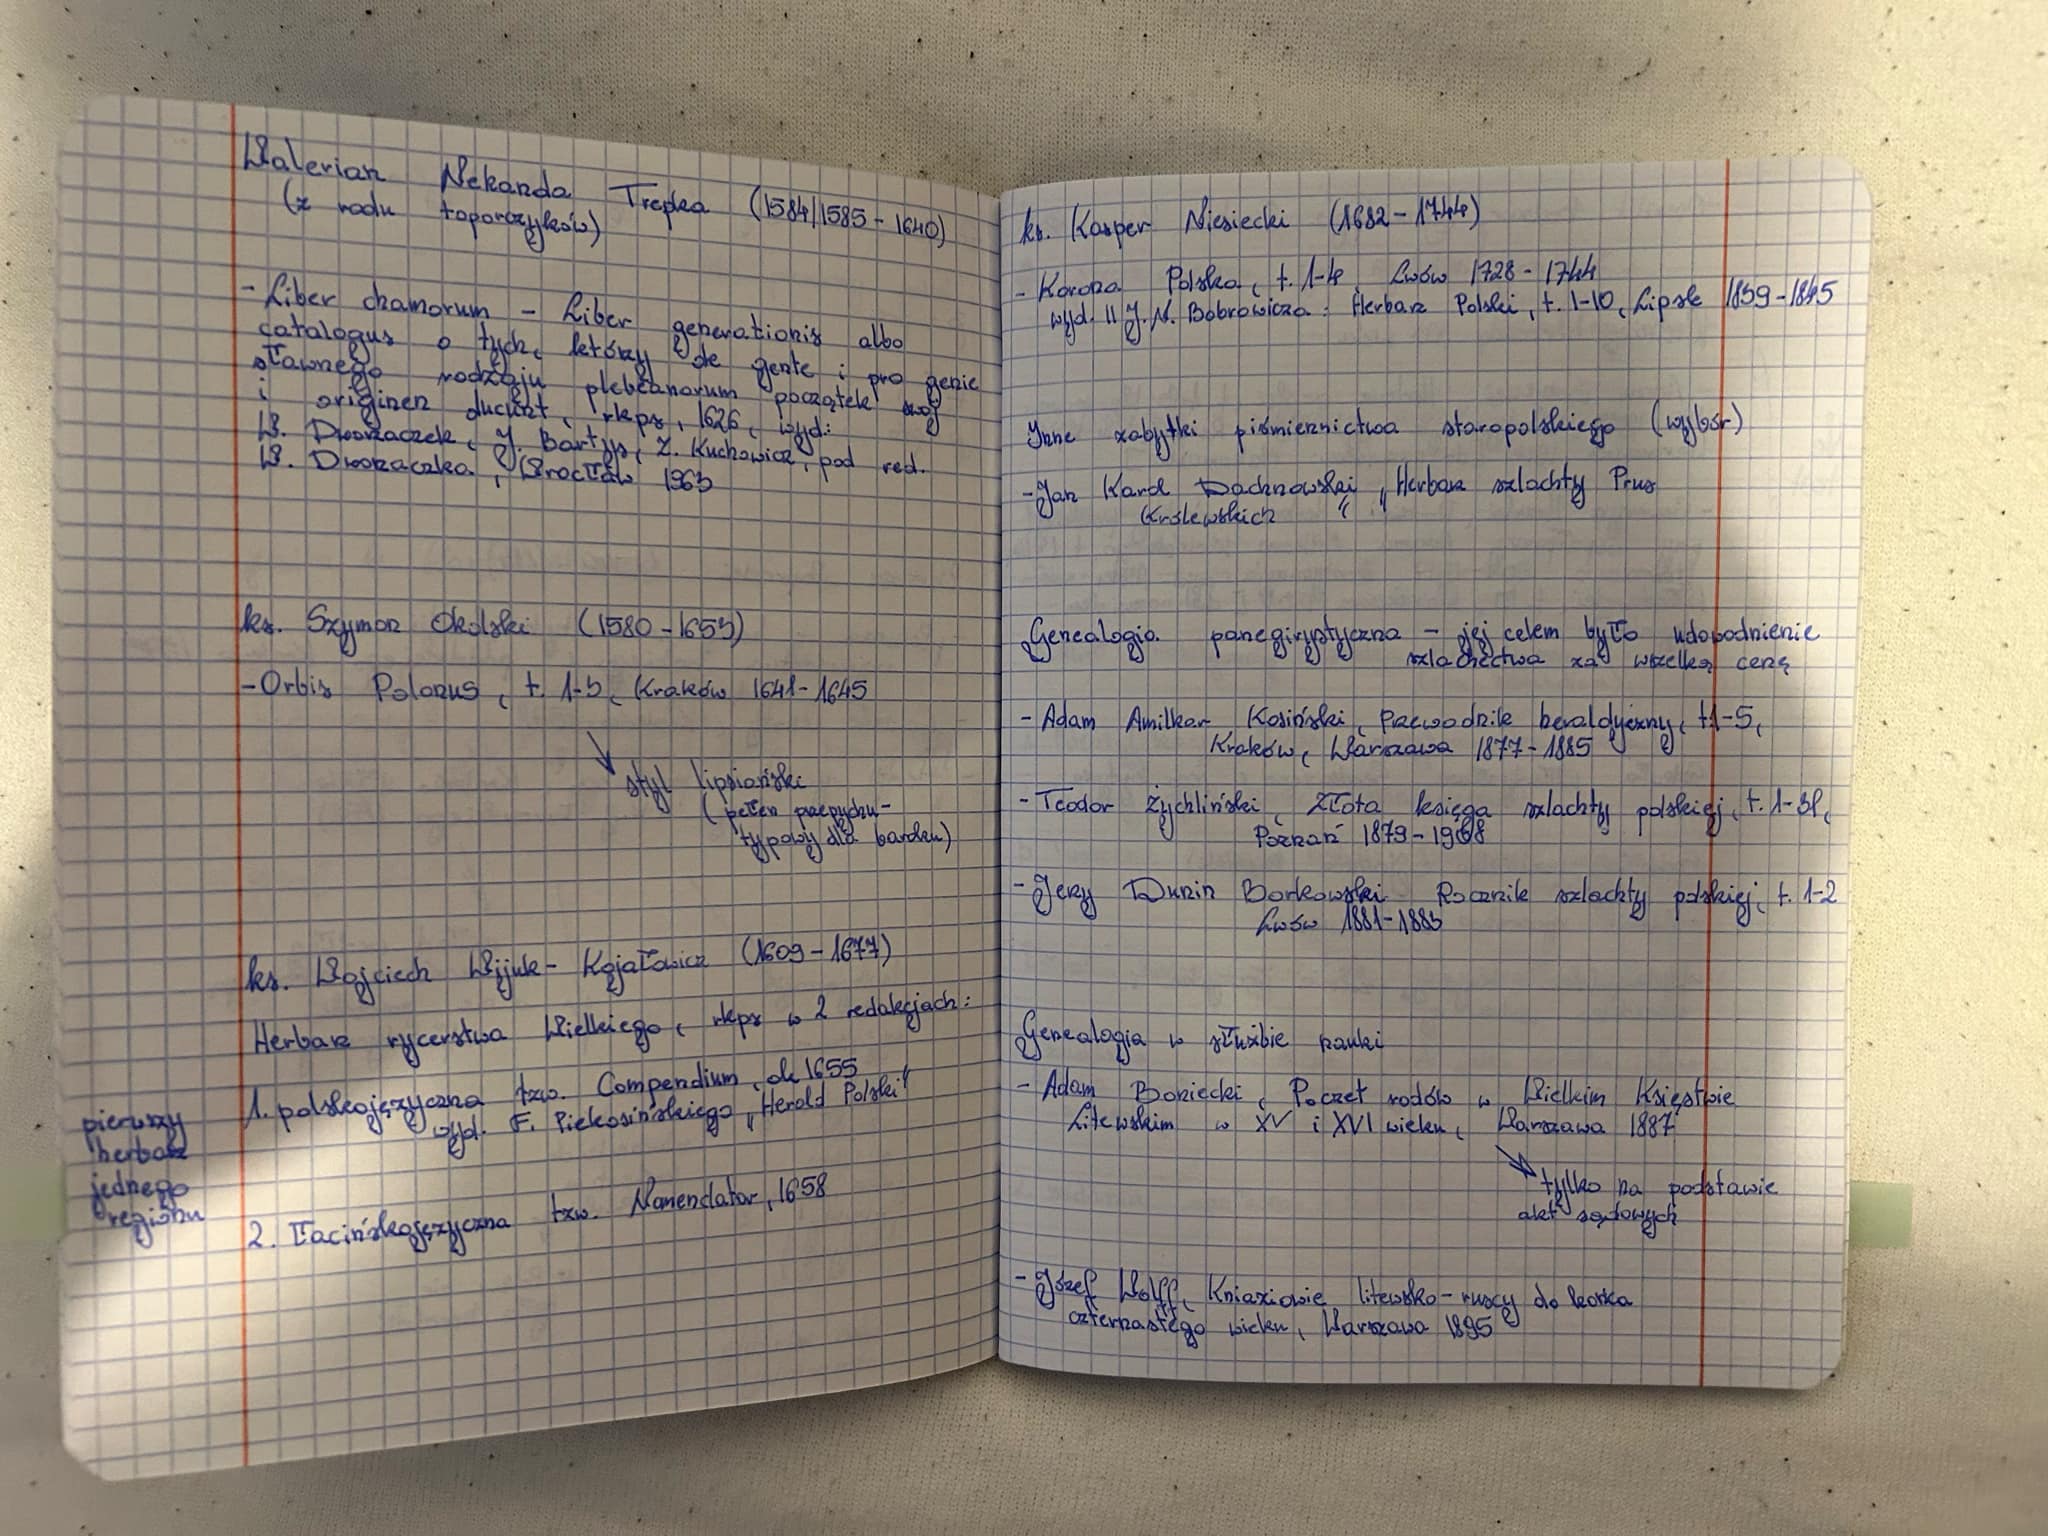 Walerian Nekanda Trepka (1584/1585 - 1640)
(z rodu toporczyków)
- Liber chamorum - Liber generationis albo
catalogus o tych, którzy de gente i pro genie
sławnego rodzaju plebeanorum początek swój
i originen ducunt, rkps, 1626, wyd:
W. Dworzaczek, J. Bartys, Z. Kuchowicz, pod red.
W. Dworzaczka, Wrocław 1963
ks. Szymon Okolski (1580 - 1653)
- Orbis Polonus, t. 1-3, Kraków 1641 - 1645
styl lipsiański
(pełen przepychu -
typowy dla baroku)
ks. Wojciech Wijuk - Kojałowicz (1609 - 1677)
Herbarz rycerstwa Wielkiego, rkps w 2 redakcjach:
1. polskojęzyczna tzw. Compendium, ok 1655
wyd. F. Piekosińskiego „Herold Polski"
pierwszy
herbarz
jednego
regionu
2. łacińskojęzyczna tzw. Nomenclator, 1658
ks. Kasper Niesiecki (1682 - 1744)
- Korona Polska, t. 1-4, Lwów 1728 - 1744
wyd. II J. N. Bobrowicza: Herbarz Polski, t. 1-10, Lipsk 1839 - 1845
Inne zabytki piśmiennictwa staropolskiego (wybór)
- Jan Karol Dachnowski „Herbarz szlachty Prus
Królewskich"
Genealogia panegirystyczna - jej celem było udowodnienie
szlachectwa za wszelką cenę
- Adam Amilkar Kosiński, Przewodnik heraldyczny, t.1-5,
Kraków, Warszawa 1877 - 1885
- Teodor Żychliński, Złota księga szlachty polskiej, t. 1-31,
Poznań 1879 - 1908
- Jerzy Dunin Borkowski Rocznik szlachty polskiej, t. 1-2
Lwów 1881 - 1883
Genealogia w służbie nauki
- Adam Boniecki, Poczet rodów w Wielkim Księstwie
Litewskim w XV i XVI wieku, Warszawa 1887
tylko na podstawie
akt sądowych
- Józef Wolff, Kniaziowie litewsko - ruscy do końca
czternastego wieku, Warszawa 1895